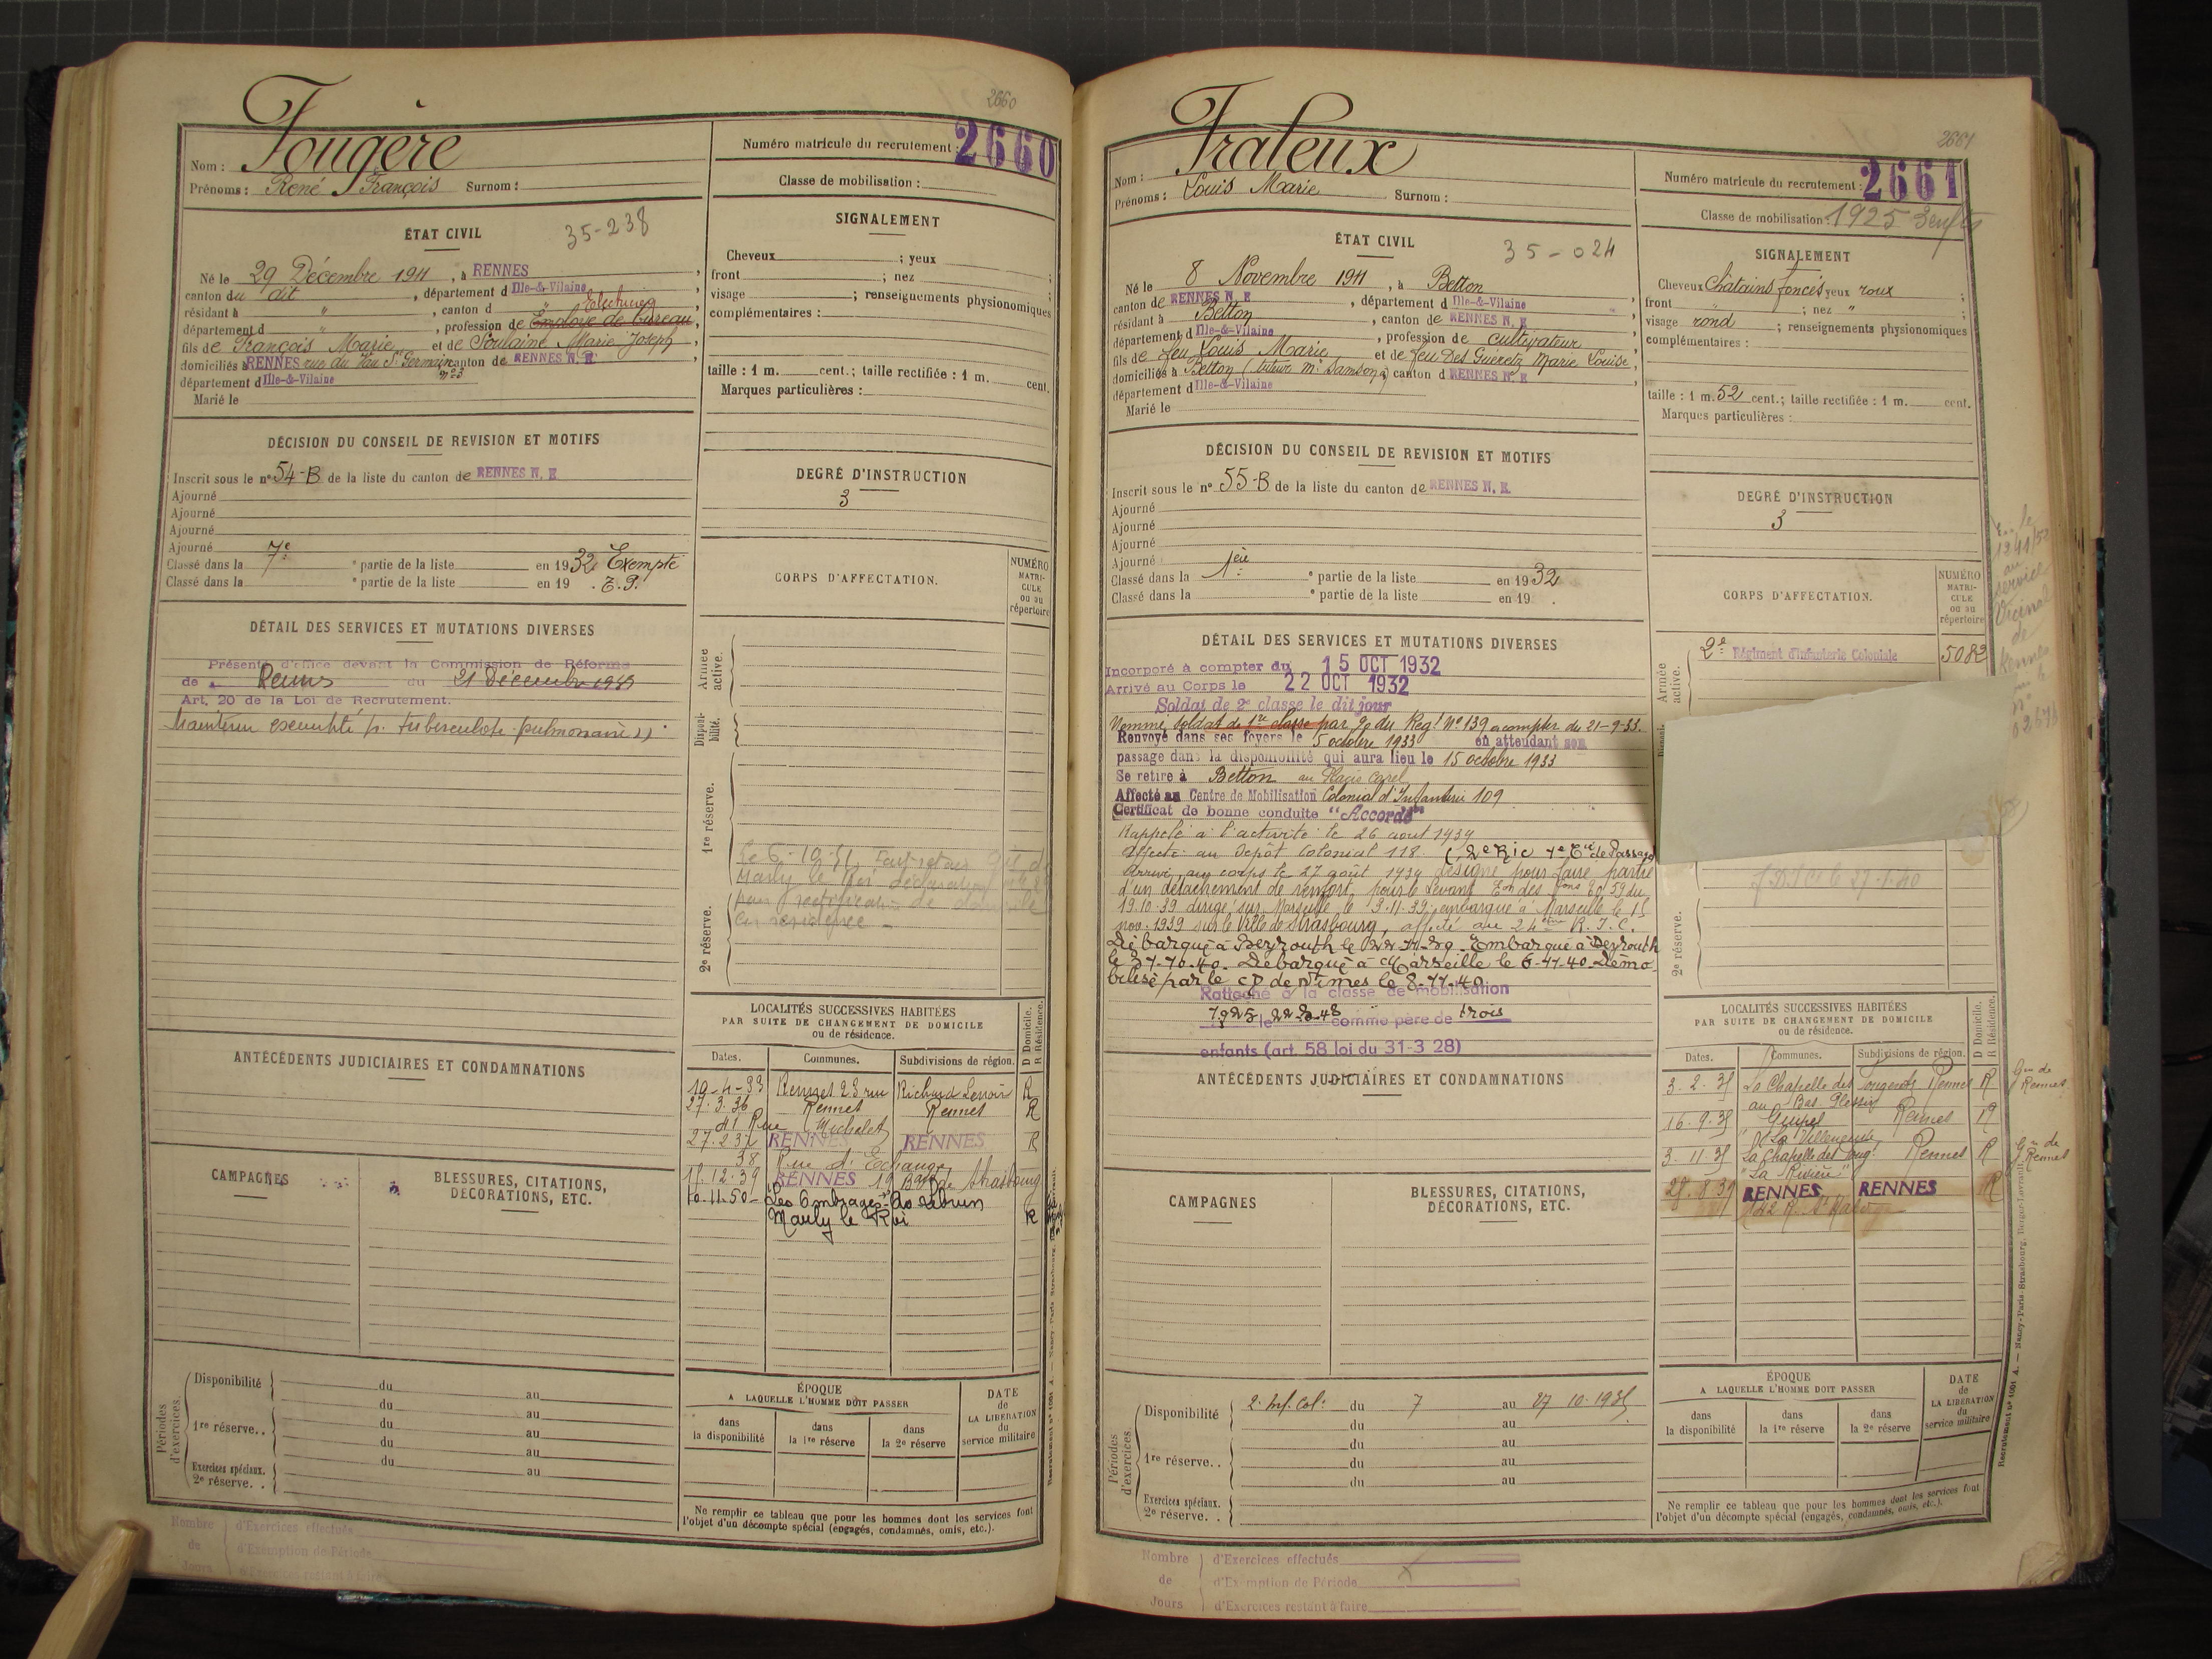 2660
Fougère
Nom :
Prénoms : René François Surnom :
Numéro matricule du recrutement : 2660
Classe de mobilisation :
ÉTAT CIVIL
35-238
Né le 29 Décembre 1911, à RENNES,
canton du dit, département d Ille-&-Vilaine
résidant à ", canton d " Electricien
département d ", profession de Employé de bureau,
fils de François Marie et de Soulaine Marie Joseph,
domiciliés à RENNES rue du Vau St Germain canton de RENNES N. E
n° 23
département d Ille-&-Vilaine
Marié le
SIGNALEMENT
Cheveux ; yeux ;
front ; nez ;
visage ; renseignements physionomiques
complémentaires :
taille : 1 m. cent.; taille rectifiée : 1 m. cent.
Marques particulières :
DÉCISION DU CONSEIL DE REVISION ET MOTIFS
Inscrit sous le n° 54-B de la liste du canton de RENNES N. E
Ajourné
Ajourné
Ajourné
Ajourné
Classé dans la 7e ° partie de la liste en 1932 Exempté
Classé dans la ° partie de la liste en 19 . T. P.
DEGRÉ D'INSTRUCTION
3
CORPS D'AFFECTATION.
NUMÉRO
MATRI-
CULE
ou au
répertoire
DÉTAIL DES SERVICES ET MUTATIONS DIVERSES
Présenté d'office devant la Commission de Réforme
de Rennes du 21 Décembre 1939
Art. 20 de la Loi de Recrutement.
Maintenu exempté p. tuberculose pulmonaire
Armée
active.
Disponi-
bilité.
1re réserve.
2e réserve.
Le 6-10-51
Marly le Roi déclaration
pour rectification de domicile
en résidence -
ANTÉCÉDENTS JUDICIAIRES ET CONDAMNATIONS
LOCALITÉS SUCCESSIVES HABITÉES
PAR SUITE DE CHANGEMENT DE DOMICILE
ou de résidence.
D Domicile.
R Résidence.
Dates. Communes. Subdivisions de région.
19-4-33 Rennes 23 rue Richard Lenoir R
27.3.36 Rennes Rennes R
41 Rue Michelet
27.2.37 RENNES RENNES R
38 Rue d'Echange
15.12.39 RENNES 19 Bard de Strasbourg
10-11-50- Les Ombrages
Marly le Roi R
CAMPAGNES
BLESSURES, CITATIONS,
DÉCORATIONS, ETC.
Périodes
d'exercices.
Disponibilité du au
du au
1re réserve.. du au
du au
du au
Exercices spéciaux.
2e réserve. . au
ÉPOQUE
A LAQUELLE L'HOMME DOIT PASSER
dans
la disponibilité
dans
la 1re réserve
dans
la 2e réserve
DATE
de
LA LIBÉRATION
du
service militaire
Ne remplir ce tableau que pour les hommes dont les services font
l'objet d'un décompte spécial (engagés, condamnés, omis, etc.).
Nombre
de
Jours
d'Exercices effectués
d'Exemption de Période
d'Exercices restant à faire
2661
Frateux
Nom :
Prénoms : Louis Marie Surnom :
Numéro matricule du recrutement : 2661
Classe de mobilisation : 1925 3 enfts
ÉTAT CIVIL
35-024
Né le 8 Novembre 1911, à Betton
canton de RENNES N. E, département d Ille-&-Vilaine
résidant à Betton, canton de RENNES N. E
département d Ille-&-Vilaine, profession de cultivateur
fils de feu Louis Marie et de feu Des Guéretz Marie Louise,
domiciliés à Betton (tuteur mr Samson) canton d RENNES N. E
département d Ille-&-Vilaine
Marié le
SIGNALEMENT
Cheveux Chatains foncés yeux roux ;
front ; nez " ;
visage rond ; renseignements physionomiques
complémentaires :
taille : 1 m. 52 cent.; taille rectifiée : 1 m. cent.
Marques particulières :
DÉCISION DU CONSEIL DE REVISION ET MOTIFS
Inscrit sous le n° 55-B de la liste du canton de RENNES N. E.
Ajourné
Ajourné
Ajourné
Ajourné
Classé dans la 1ère ° partie de la liste en 1932
Classé dans la ° partie de la liste en 19 .
DEGRÉ D'INSTRUCTION
3
CORPS D'AFFECTATION.
NUMÉRO
MATRI-
CULE
ou au
répertoire
2e Régiment d'Infanterie Coloniale 5082
Armée
active.
2e réserve.
au
service
Vicinal
de
Rennes
DÉTAIL DES SERVICES ET MUTATIONS DIVERSES
Incorporé à compter du 15 OCT 1932
Arrivé au Corps le 22 OCT 1932
Soldat de 2e classe le dit jour
Nommé soldat de 1re classe par O. du Régt N° 139 a compter du 21-9-33.
Renvoyé dans ses foyers le 5 octobre 1933 en attendant son
passage dans la disponibilité qui aura lieu le 15 octobre 1933
Se retire à Betton au Placis Carel
Affecté au Centre de Mobilisation Colonial d'Infanterie 109
Certificat de bonne conduite "Accordé"
Rappelé à l'activité le 26 aout 1939
Affecté au Dépôt Colonial 118. (2e Ric 4e Cie de Passage
Arrivé au corps le 27 août 1939 désigné pour faire partie
d'un détachement de renfort pour le Levant 2059 du
19.10.39 dirigé sur Marseille le 9.11.39, embarqué à Marseille le 15
nov. 1939 sur le Ville de Strasbourg, affecté au 24ème R.I.C.
Débarqué à Beyrouth le 22-11-39 - Embarqué à Beyrouth
le 31-10-40. Débarqué à Marseille le 6-11-40. Démo-
bilisé par le CD de Nîmes le 8-11-40
Rattaché à la classe de mobilisation
1925 le 22.3.48 comme père de trois
enfants (art. 58 loi du 31-3 28)
ANTÉCÉDENTS JUDICIAIRES ET CONDAMNATIONS
LOCALITÉS SUCCESSIVES HABITÉES
PAR SUITE DE CHANGEMENT DE DOMICILE
ou de résidence.
D Domicile.
R Résidence.
Dates. Communes. Subdivisions de région.
3.2.35 La Chapelle des Fougeretz Rennes R Gie de Rennes
au Bas Plessis
16.9.35 Guipel Rennes R
"La Villeneuve"
3.11.35 La Chapelle des Foug. Rennes R Gie de Rennes
"La Rivière"
28.8.39 RENNES RENNES R
142 R. St Malo
CAMPAGNES
BLESSURES, CITATIONS,
DÉCORATIONS, ETC.
Périodes
d'exercices.
Disponibilité 2. Inf. Col. du 7 au 27 10.1935
du au
du au
1re réserve.. du au
du au
Exercices spéciaux.
2e réserve. .
ÉPOQUE
A LAQUELLE L'HOMME DOIT PASSER
dans
la disponibilité
dans
la 1re réserve
dans
la 2e réserve
DATE
de
LA LIBÉRATION
du
service militaire
Ne remplir ce tableau que pour les hommes dont les services font
l'objet d'un décompte spécial (engagés, condamnés, omis, etc.).
Nombre
de
Jours
d'Exercices effectués
d'Exemption de Période
d'Exercices restant à faire
Recrutement n° 1061 A. — Nancy-Paris-Strasbourg, Berger-Levrault